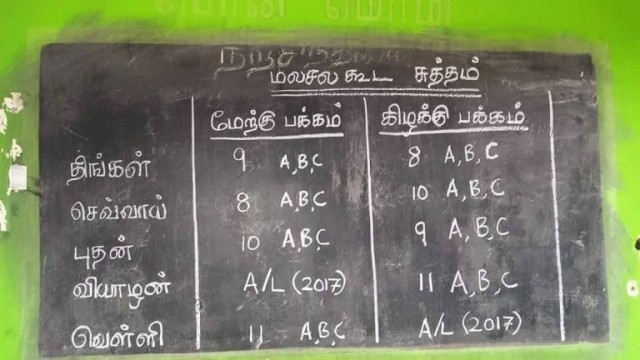 மலசல கூட சுத்தம்
மேற்கு பக்கம் கிழக்கு பக்கம்
திங்கள் 9 A,B,C 8 A,B,C
செவ்வாய் 8 A,B,C 10 A,B,C
புதன் 10 A,B,C 9 A,B,C
வியாழன் A/L (2017) 11 A,B,C
வெள்ளி 11 A,B,C A/L (2017)